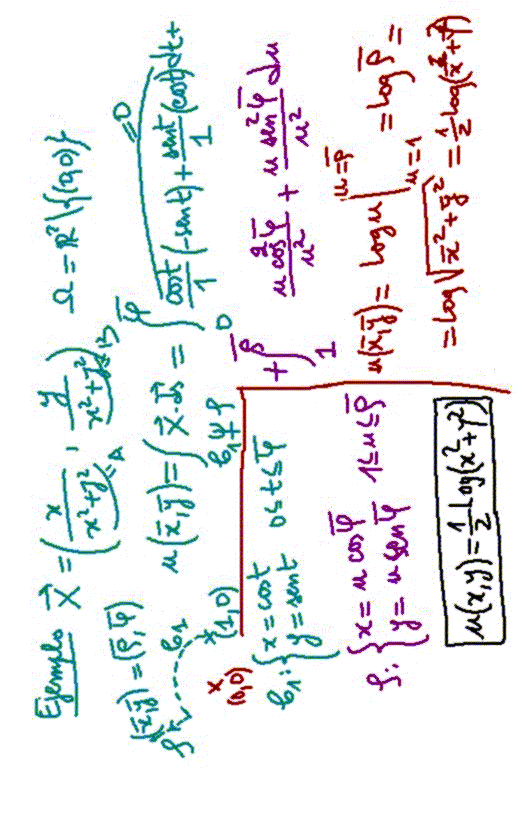 Ejemplo X⃗ = (x/(x²+y²), y/(x²+y²)) Ω = ℝ² \ {(0,0)}
=A =B
(x̄,ȳ) = (ρ̄,φ̄)
u(x̄,ȳ) = ∫ X⃗·ds⃗ = ∫₀^φ̄ cost/1 (-sent) + sent/1 (cost) dt +
=0
+ ∫₁^ρ̄ u cos²φ̄/u² + u sen²φ̄/u² du
ρ
φ₁
(1,0)
(0,0)
φ₁: { x = cost
y = sent 0≤t≤φ̄
ρ: { x = u cosφ̄
y = u senφ̄ 1≤u≤ρ̄
u(x̄,ȳ) = log u |_{u=1}^{u=ρ̄} = log ρ̄ =
= log √(x̄²+ȳ²) = 1/2 log(x̄²+ȳ²)
u(x,y) = 1/2 log(x²+y²)